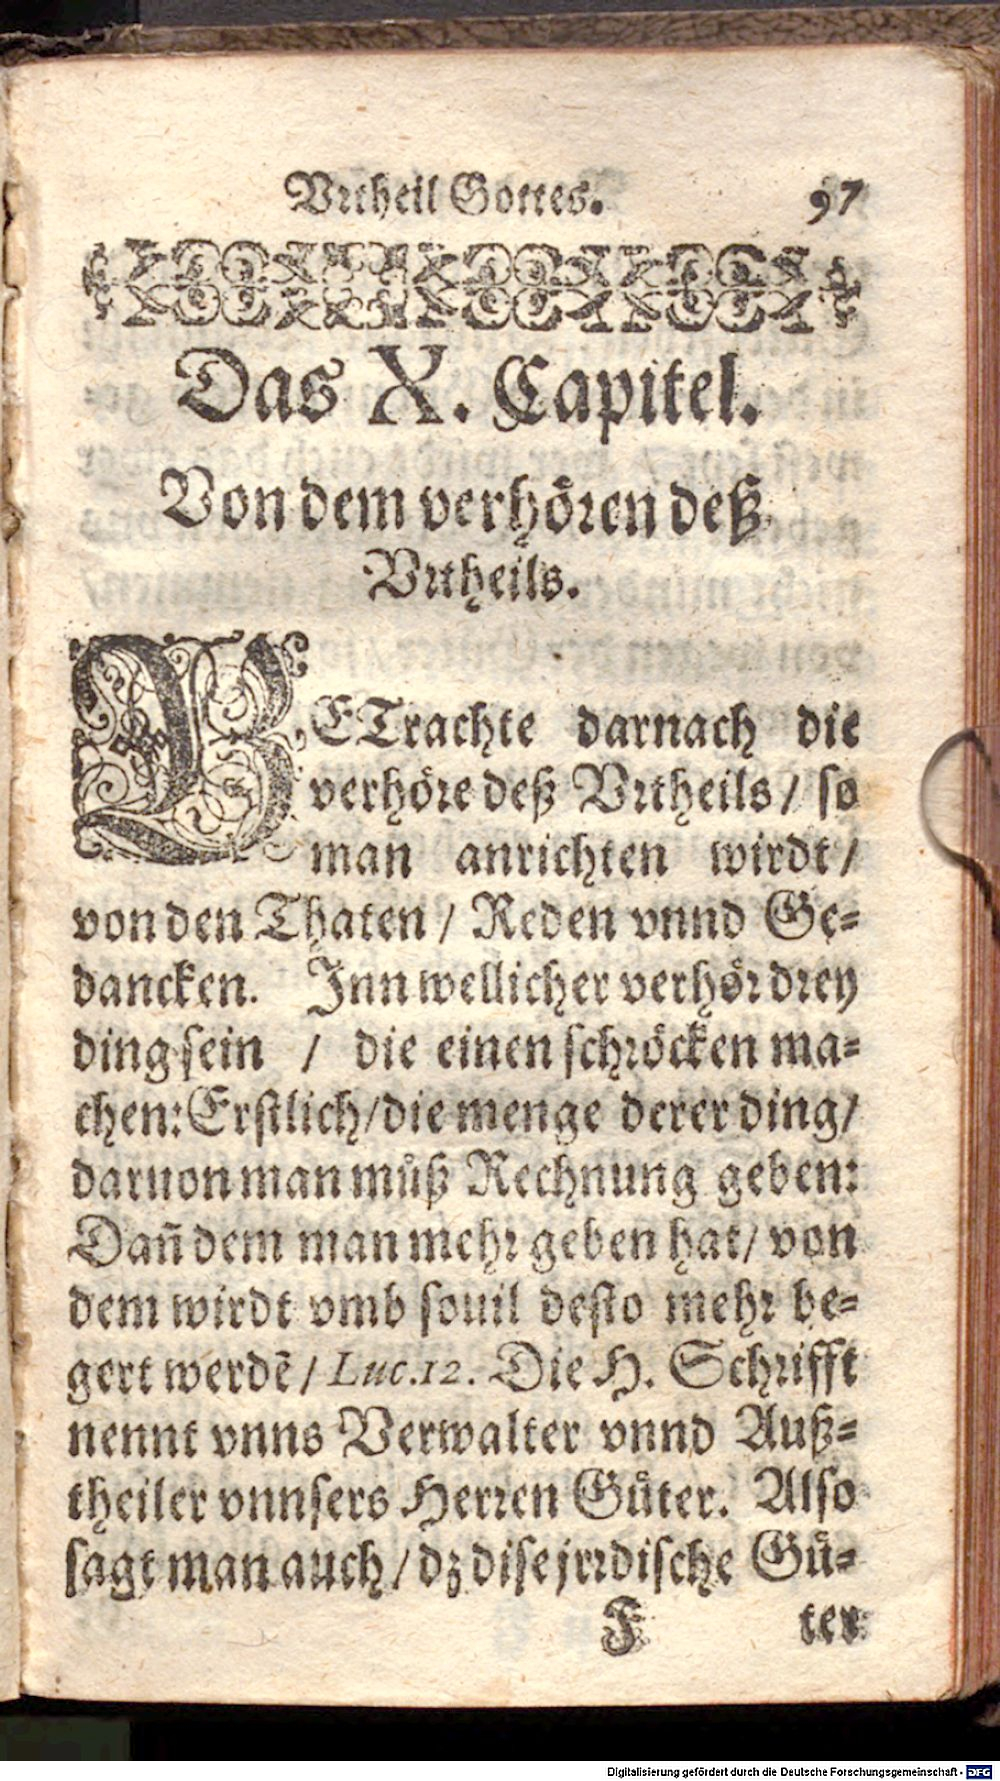 Vrtheil Gottes. 97
Das X. Capitel.
Von dem verhören deß
Vrtheils.
BETrachte darnach die
verhöre deß Vrtheils / so
man anrichten wirdt /
von den Thaten / Reden vnnd Ge-
dancken. Inn wellicher verhör drey
ding sein / die einen schröcken ma-
chen: Erstlich / die menge derer ding /
daruon man můß Rechnung geben:
Dañ dem man mehr geben hat / von
dem wirdt vmb souil desto mehr be-
gert werdē / Luc. 12. Die H. Schrifft
nennt vnns Verwalter vnnd Auß-
theiler vnnsers Herren Gůter. Also
sagt man auch / dz dise jrrdische Gů-
F ter
Digitalisierung gefördert durch die Deutsche Forschungsgemeinschaft - DFG